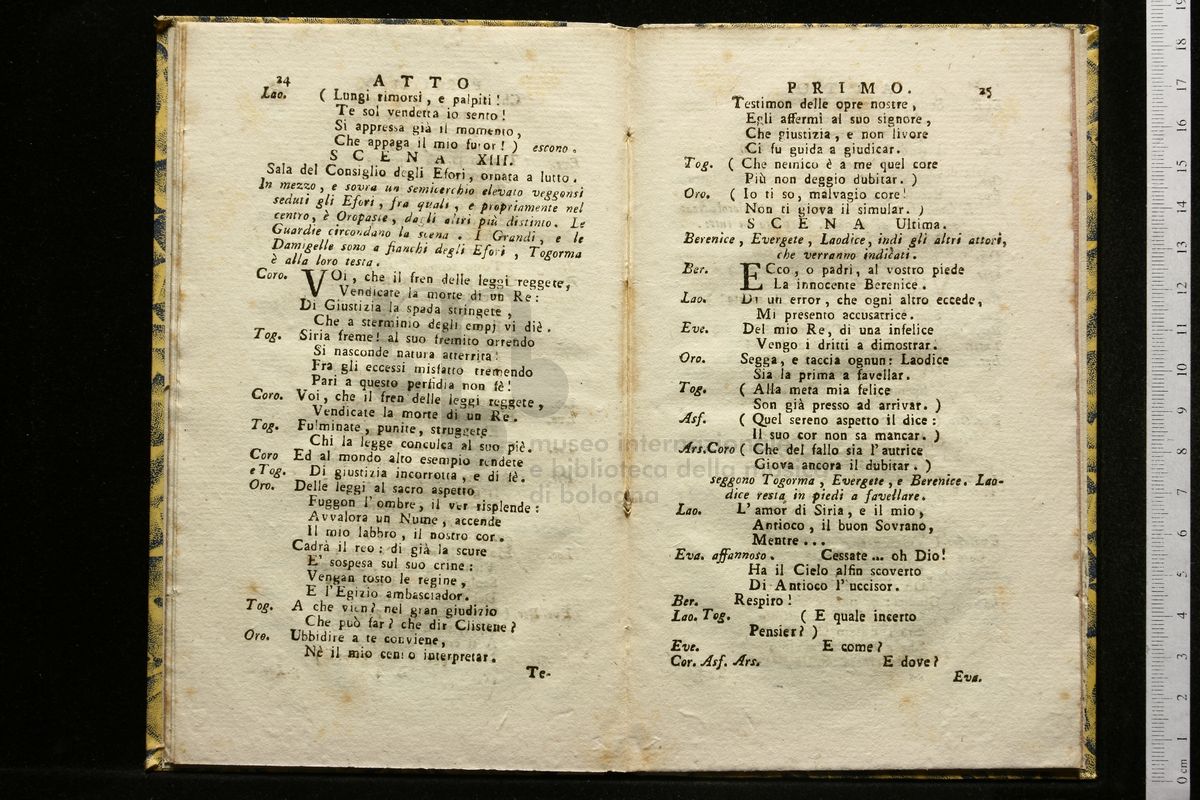 24 ATTO
Lao. ( Lungi rimorsi, e palpiti!
Te sol vendetta io sento!
Si appressa già il momento,
Che appaga il mio furor! ) escono.
SCENA XIII.
Sala del Consiglio degli Efori, ornata a lutto.
In mezzo, e sovra un semicerchio elevato veggonsi
seduti gli Efori, fra quali, e propriamente nel
centro, è Oropaste, dagli altri più distinto. Le
Guardie circondano la scena. I Grandi, e le
Damigelle sono a fianchi degli Efori, Togorma
è alla loro testa.
Coro. VOi, che il fren delle leggi reggete,
Vendicate la morte di un Re:
Di Giustizia la spada stringete,
Che a sterminio degli empj vi diè.
Tog. Siria freme! al suo fremito orrendo
Si nasconde natura atterrita!
Fra gli eccessi misfatto tremendo
Pari a questo perfidia non fè!
Coro. Voi, che il fren delle leggi reggete,
Vendicate la morte di un Re.
Tog. Fulminate, punite, struggete
Chi la legge conculca al suo piè.
Coro Ed al mondo alto esempio rendete
e Tog. Di giustizia incorrotta, e di fè.
Oro. Delle leggi al sacro aspetto
Fuggon l'ombre, il ver risplende:
Avvalora un Nume, accende
Il mio labbro, il nostro cor.
Cadrà il reo: di già la scure
E' sospesa sul suo crine:
Vengan tosto le regine,
E l'Egizio ambasciador.
Tog. A che vien? nel gran giudizio
Che può far? che dir Clistene?
Oro. Ubbidire a te conviene,
Nè il mio cenno interpretar.
Te-
PRIMO. 25
Testimon delle opre nostre,
Egli affermi al suo signore,
Che giustizia, e non livore
Ci fu guida a giudicar.
Tog. ( Che nemico è a me quel core
Più non deggio dubitar. )
Oro. ( Io ti so, malvagio core!
Non ti giova il simular. )
SCENA Ultima.
Berenice, Evergete, Laodice, indi gli altri attori,
che verranno indicati.
Ber. ECco, o padri, al vostro piede
La innocente Berenice.
Lao. Di un error, che ogni altro eccede,
Mi presento accusatrice.
Eve. Del mio Re, di una infelice
Vengo i dritti a dimostrar.
Oro. Segga, e taccia ognun: Laodice
Sia la prima a favellar.
Tog. ( Alla meta mia felice
Son già presso ad arrivar. )
Asf. ( Quel sereno aspetto il dice:
Il suo cor non sa mancar. )
Ars. Coro ( Che del fallo sia l'autrice
Giova ancora il dubitar. )
seggono Togorma, Evergete, e Berenice. Lao-
dice resta in piedi a favellare.
Lao. L'amor di Siria, e il mio,
Antioco, il buon Sovrano,
Mentre...
Eva. affannoso. Cessate... oh Dio!
Ha il Cielo alfin scoverto
Di Antioco l'uccisor.
Ber. Respiro!
Lao. Tog. ( E quale incerto
Pensier? )
Eve. E come?
Cor. Asf. Ars. E dove?
Eva.
museo internazionale
e biblioteca della musica
di bologna